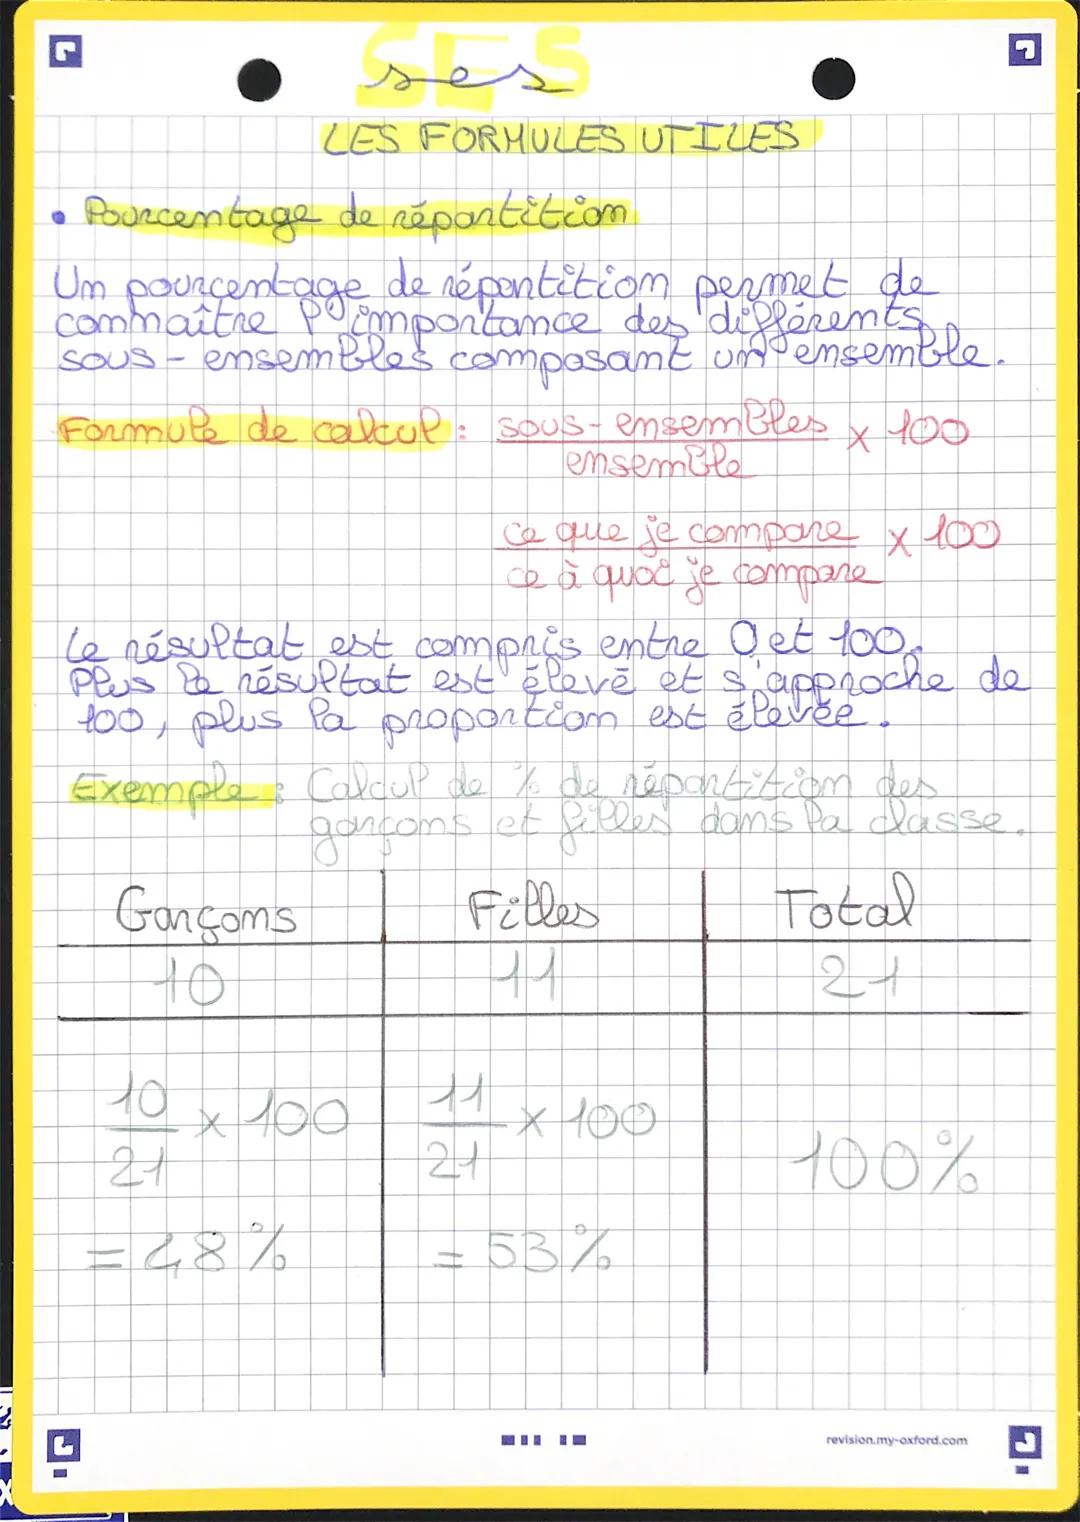 SES
ses
LES FORMULES UTILES
• Pourcentage de répartition
Un pourcentage de répartition permet de
connaître l'importance des différents
sous-ensembles composant un ensemble.
Formule de calcul : sous-ensembles x 100
ensemble
ce que je compare x 100
ce à quoi je compare
Le résultat est compris entre 0 et 100.
Plus le résultat est élevé et s'approche de
100, plus la proportion est élevée.
Exemple : Calcul de % de répartition des
garçons et filles dans la classe.
Garçons Filles Total
10 11 21
10 x 100 11 x 100
21 21 100%
= 48% = 53%
revision.my-oxford.com